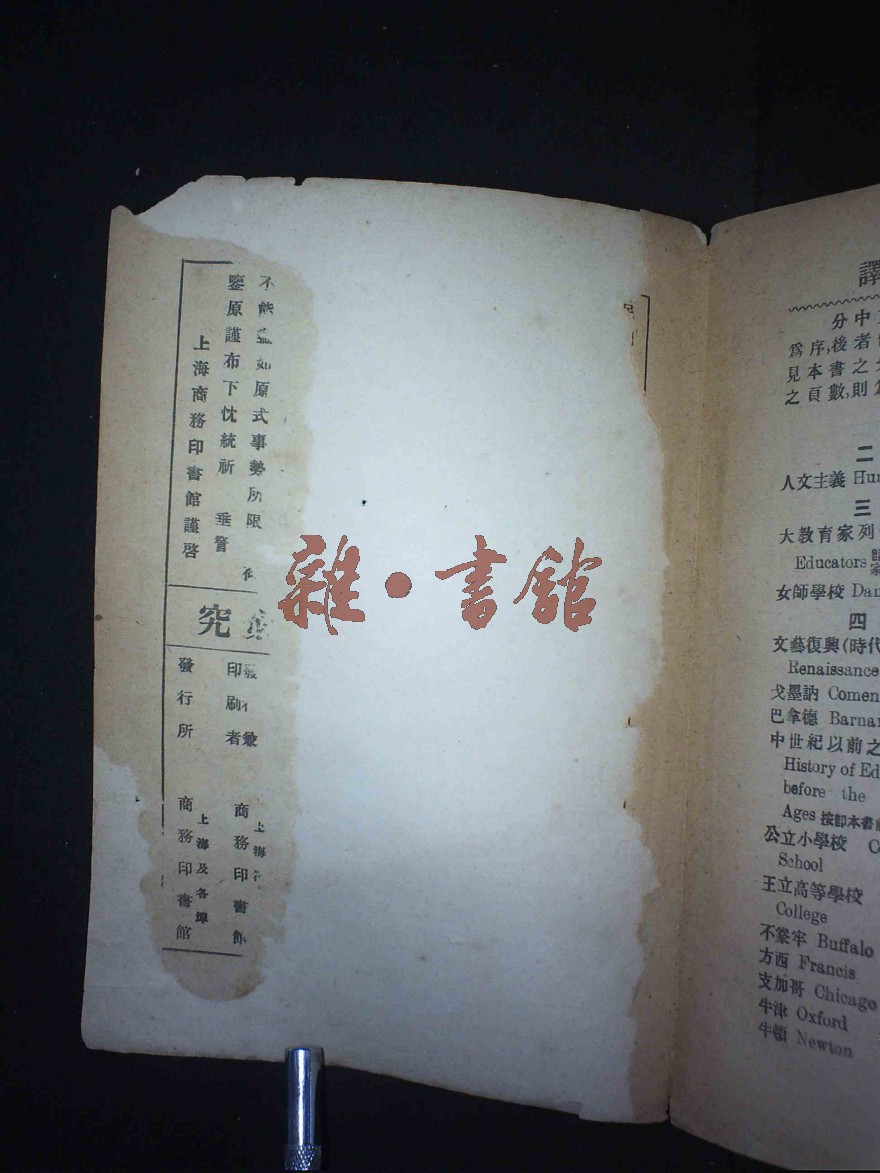 不能盡如原式事勢所限
鑒原謹布下忱統祈 垂詧
上海商務印書館謹啓
究
印刷者
發行所
商務印書館
上海及各埠
商務印書館
雜·書館
譯
分中
爲序,後者
見本書之
之頁數,則
二
人文主義
三
大教育家列
Educators
女師學校
四
文藝復興(時代
Renaissance
戈墨訥 Comen
巴拿德 Barna
中世紀以前之
History of Ed
before the
Ages 按卽本書
公立小學校
School
王立高等學校
College
不 牢 Buffalo
方西 Francis
支加哥 Chicago
牛津 Oxford
牛頓 Newton